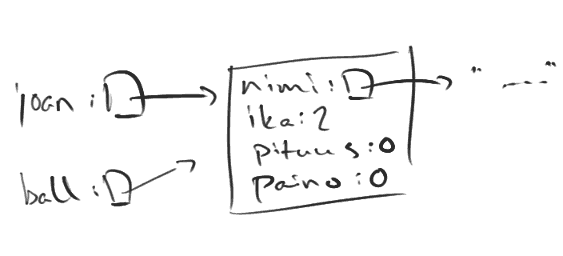 joan:
ball:
nimi: " ---- "
ika: 2
pituus: 0
paino: 0